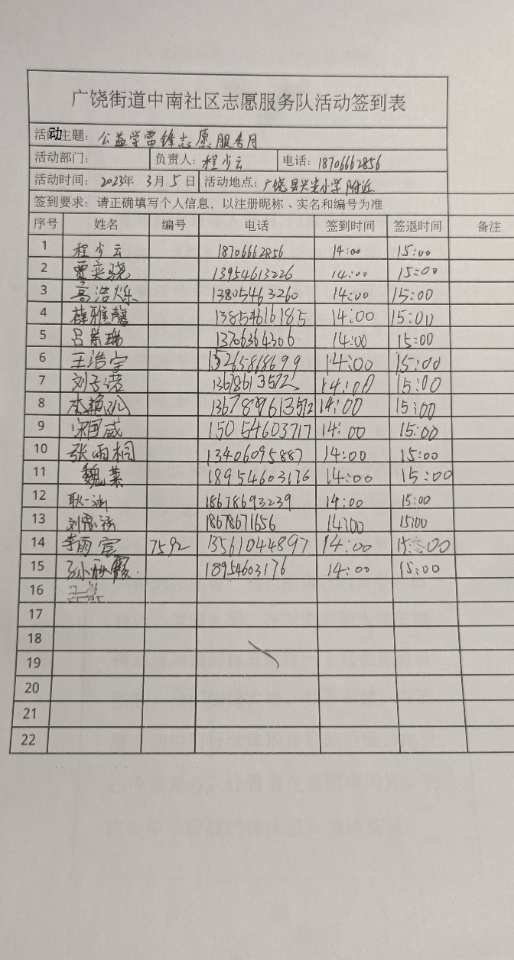 广饶街道中南社区志愿服务队活动签到表
活动主题：公益学雷锋志愿服务月
活动部门： 负责人：程少云 电话：18706662856
活动时间：2023年 3月5日 活动地点：广饶县兴安小学附近
签到要求：请正确填写个人信息，以注册昵称、实名和编号为准
序号 姓名 编号 电话 签到时间 签退时间 备注
1 程少云 18706662856 14:00 15:00
2 贾奕骁 13954613226 14:00 15:00
3 高浩烁 13805463260 14:00 15:00
4 薛雅馨 13854616185 14:00 15:00
5 吕荣瑞 13706364306 14:00 15:00
6 王浩宇 15265868699 14:00 15:00
7 刘子诺 13678613572 14:00 15:00
8 14:00 15:00
9 宋国威 15054603717 14:00 15:00
10 张雨桐 13406095887 14:00 15:00
11 魏莱 18954603176 14:00 15:00
12 耿一涵 18678693239 14:00 15:00
13 刘思涵 18678671656 14:00 15:00
14 李雨宸 7592 13561044897 14:00 15:00
15 孙秋霞 18954603176 14:00 15:00
16
17
18
19
20
21
22